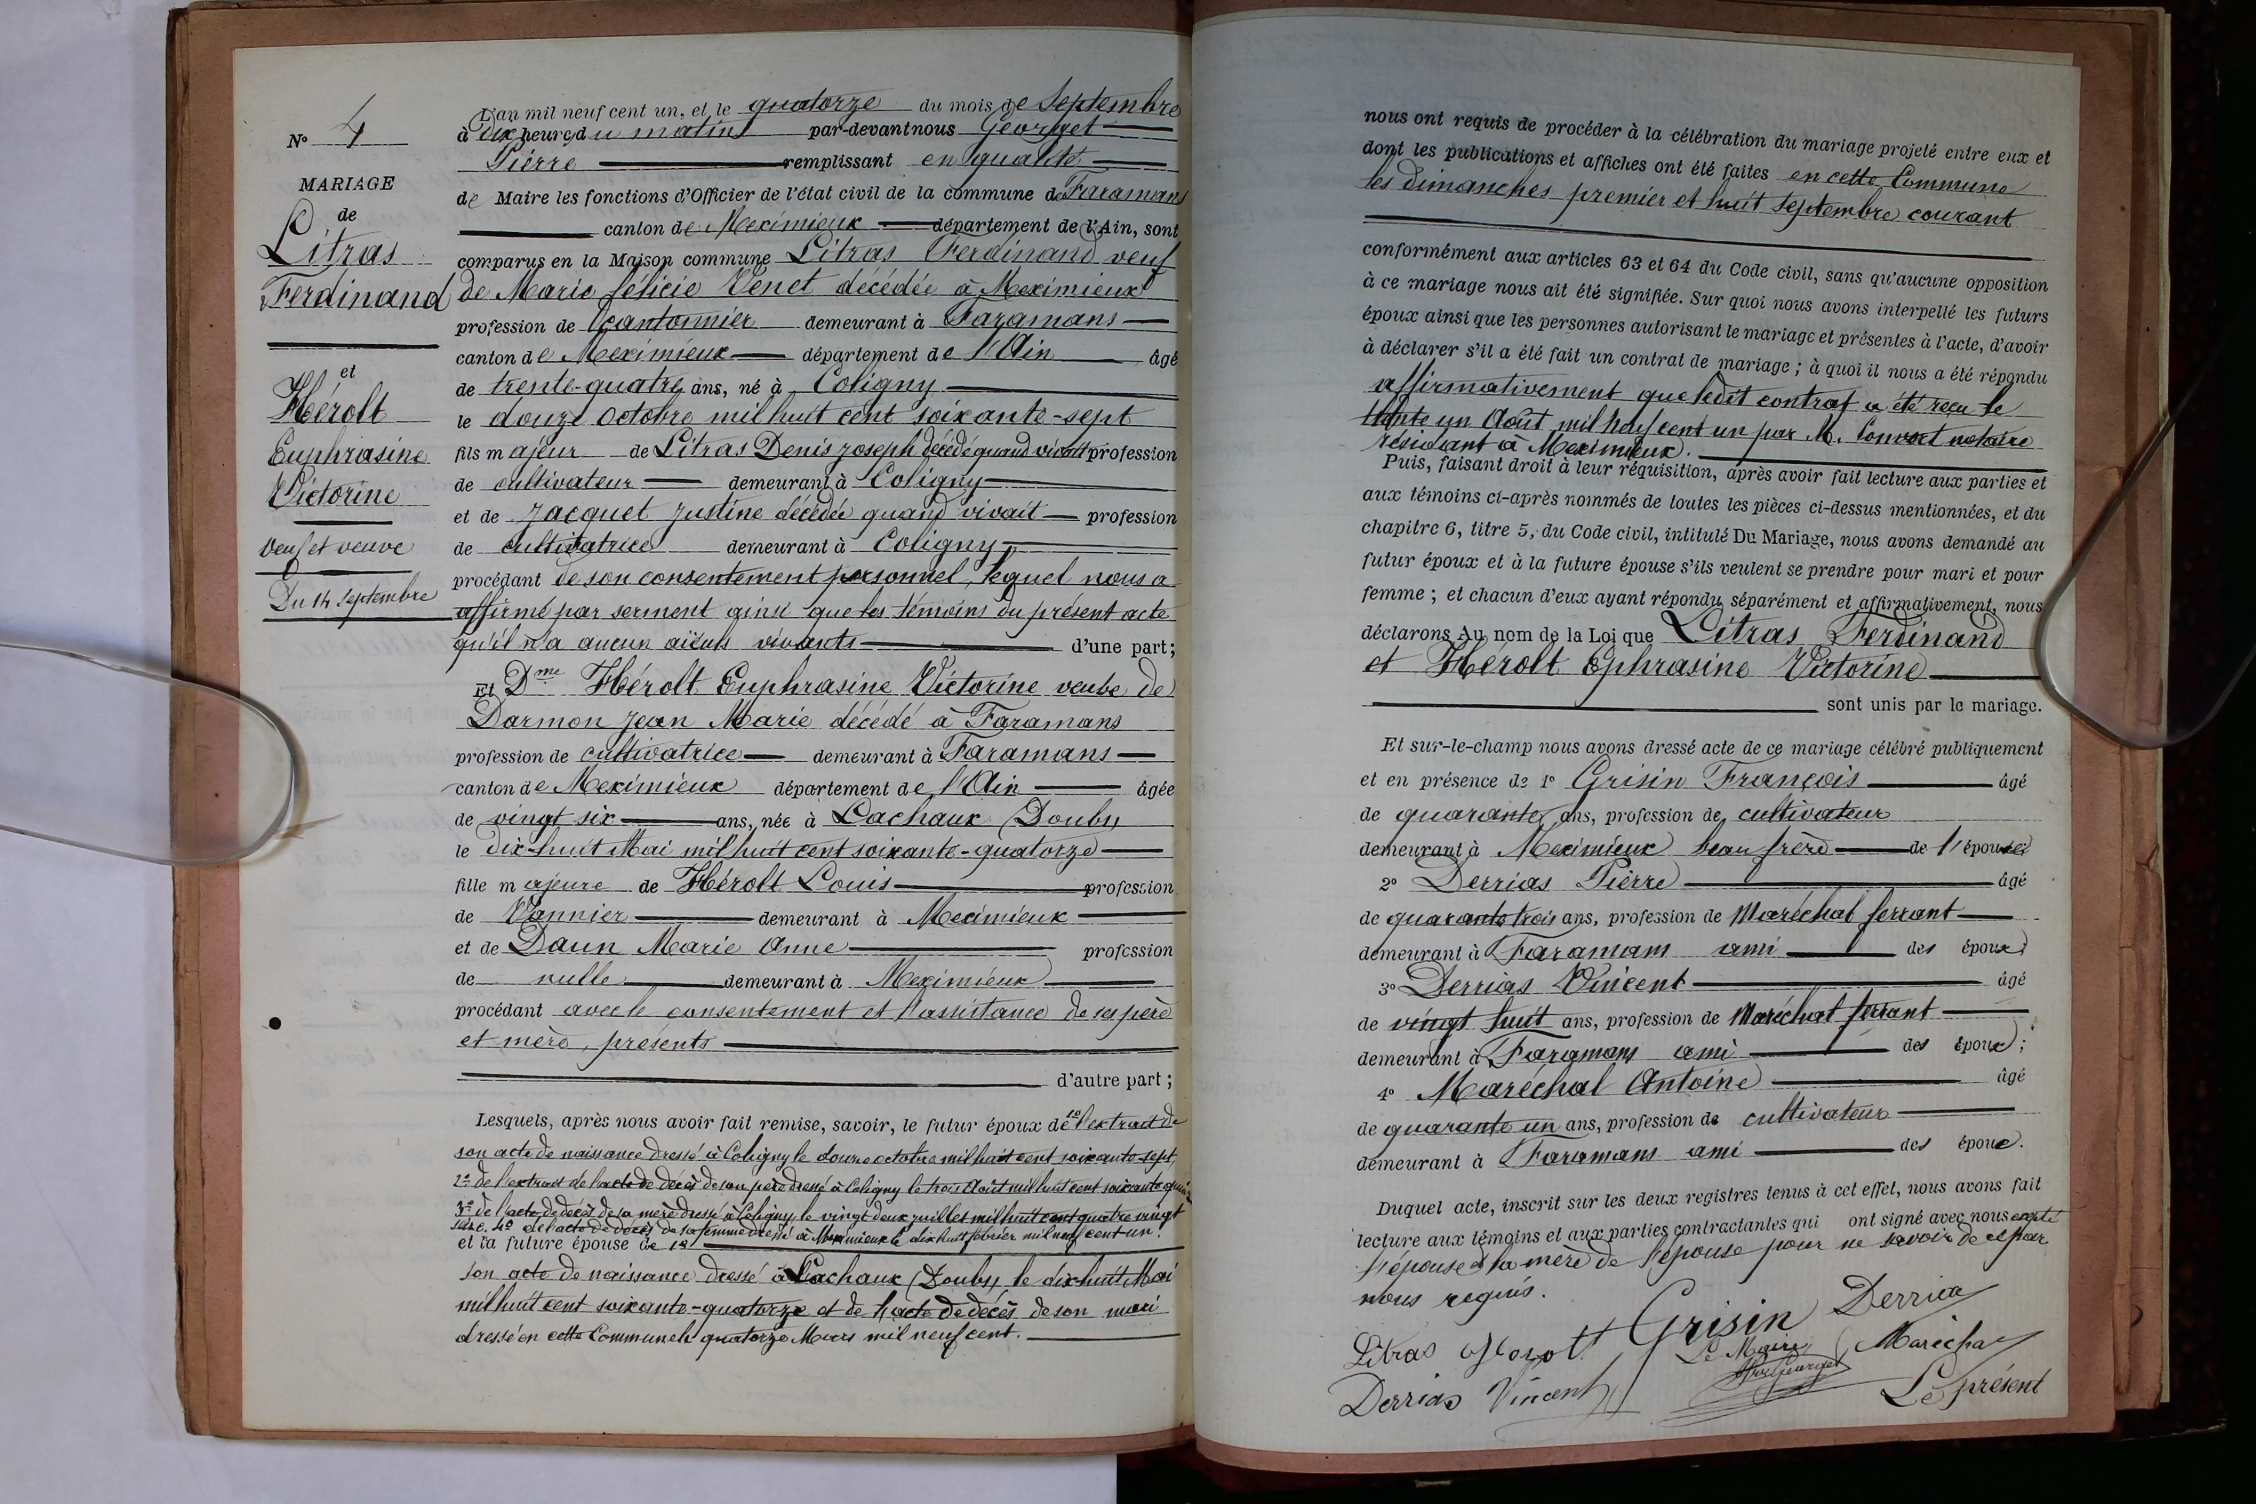 N° 4
MARIAGE
de
Litras
Ferdinand
et
Hérolt
Euphrasine
Victorine
veuf et veuve
Du 14 Septembre
L'an mil neuf cent un, et le quatorze du mois de Septembre
à dix heures du matin par-devant nous Georget
Pierre remplissant en qualité
de Maire les fonctions d'Officier de l'état civil de la commune de Faramans
canton de Meximieux département de l'Ain, sont
comparus en la Maison commune Litras Ferdinand veuf
de Marie félicie Venet décédée à Meximieux
profession de cantonnier demeurant à Faramans
canton de Meximieux département de l'Ain âgé
de trente-quatre ans, né à Coligny
le douze octobre mil huit cent soixante-sept
fils majeur de Litras Denis Joseph décédé quand vivait profession
de cultivateur demeurant à Coligny
et de Jacquet Justine décédée quand vivait profession
de cultivatrice demeurant à Coligny
procédant de son consentement personnel, lequel nous a
affirmé par serment ainsi que les témoins du présent acte
qu'il n'a aucun aïeuls vivants d'une part;
Et Dme Hérolt Euphrasine Victorine veuve de
Darmon Jean Marie décédé à Faramans
profession de cultivatrice demeurant à Faramans
canton de Meximieux département de l'Ain âgée
de vingt six ans, née à Lachaux (Doubs)
le dix-huit Mai mil huit cent soixante-quatorze
fille majeure de Hérolt Louis profession
de Vannier demeurant à Meximieux
et de Daun Marie Anne profession
de nulle demeurant à Meximieux
procédant avec le consentement et l'assistance de ses père
et mère, présents
d'autre part;
Lesquels, après nous avoir fait remise, savoir, le futur époux de 1° l'extrait de
son acte de naissance dressé à Coligny le douze octobre mil huit cent soixante-sept,
2° de l'extrait de l'acte de décès de son père dressé à Coligny le trois Août mil huit cent soixante
3° de l'acte de décès de sa mère dressé à Coligny le vingt deux juillet mil huit cent quatre vingt
4° de l'acte de décès de sa femme dressé à Meximieux le dix huit février mil neuf cent un.
et la future épouse de 1°
son acte de naissance dressé à Lachaux (Doubs) le dix huit Mai
mil huit cent soixante-quatorze et de l'acte de décès de son mari
dressé en cette Commune le quatorze Mars mil neuf cent.
nous ont requis de procéder à la célébration du mariage projeté entre eux et
dont les publications et affiches ont été faites en cette Commune
les dimanches premier et huit Septembre courant
conformément aux articles 63 et 64 du Code civil, sans qu'aucune opposition
à ce mariage nous ait été signifiée. Sur quoi nous avons interpellé les futurs
époux ainsi que les personnes autorisant le mariage et présentes à l'acte, d'avoir
à déclarer s'il a été fait un contrat de mariage; à quoi il nous a été répondu
affirmativement que ledit contrat a été reçu le
trente un Août mil neuf cent un par M. Convert notaire
résidant à Meximieux.
Puis, faisant droit à leur réquisition, après avoir fait lecture aux parties et
aux témoins ci-après nommés de toutes les pièces ci-dessus mentionnées, et du
chapitre 6, titre 5, du Code civil, intitulé Du Mariage, nous avons demandé au
futur époux et à la future épouse s'ils veulent se prendre pour mari et pour
femme; et chacun d'eux ayant répondu séparément et affirmativement, nous
déclarons Au nom de la Loi que Litras Ferdinand
et Hérolt Ephrasine Victorine
sont unis par le mariage.
Et sur-le-champ nous avons dressé acte de ce mariage célébré publiquement
et en présence de 1° Grisin François âgé
de quarante ans, profession de cultivateur
demeurant à Meximieux beau frère de l'épouse;
2° Derrias Pierre âgé
de quarante trois ans, profession de Maréchal ferrant
demeurant à Faramans ami des époux;
3° Derrias Vincent âgé
de vingt huit ans, profession de Maréchal ferrant
demeurant à Faramans ami des époux;
4° Maréchal Antoine âgé
de quarante un ans, profession de cultivateur
demeurant à Faramans ami des époux.
Duquel acte, inscrit sur les deux registres tenus à cet effet, nous avons fait
lecture aux témoins et aux parties contractantes qui ont signé avec nous excepté
l'épouse et la mère de l'épouse pour ne savoir de ce par
nous requis.
Litras Herolt Grisin Derrias
Le Maire Maréchal
Derrias Vincent Georget
Le présent